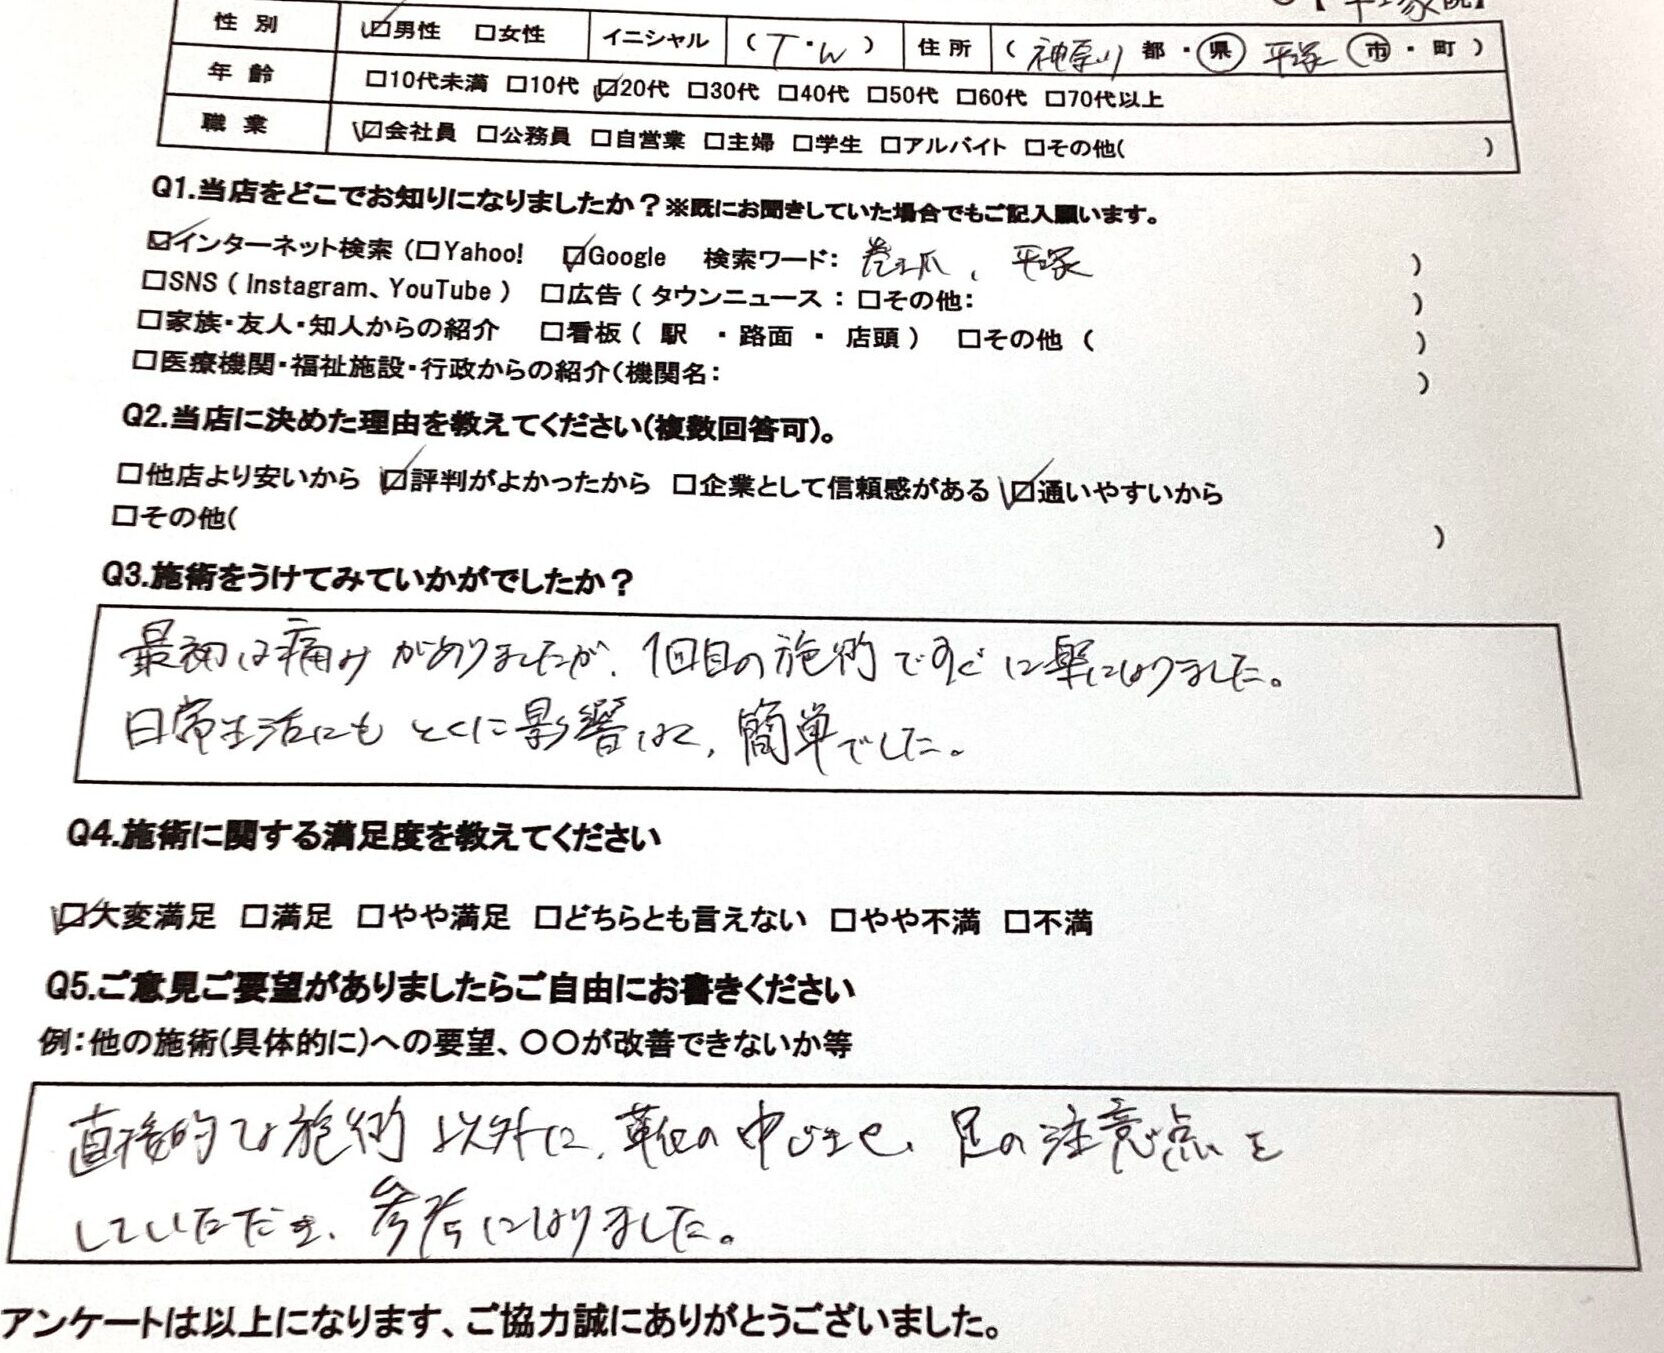 【平塚院】
性別 ☑男性 □女性 イニシャル ( T・W ) 住所 ( 神奈川 都・県 平塚 市・町 )
年齢 □10代未満 □10代 ☑20代 □30代 □40代 □50代 □60代 □70代以上
職業 ☑会社員 □公務員 □自営業 □主婦 □学生 □アルバイト □その他( )
Q1.当店をどこでお知りになりましたか？※既にお聞きしていた場合でもご記入願います。
☑インターネット検索 (□Yahoo! ☑Google 検索ワード: 巻き爪、平塚 )
□SNS ( Instagram、YouTube ) □広告 ( タウンニュース : □その他: )
□家族・友人・知人からの紹介 □看板 ( 駅 ・ 路面 ・ 店頭 ) □その他 ( )
□医療機関・福祉施設・行政からの紹介(機関名: )
Q2.当店に決めた理由を教えてください(複数回答可)。
□他店より安いから ☑評判がよかったから □企業として信頼感がある ☑通いやすいから
□その他( )
Q3.施術をうけてみていかがでしたか？
最初は痛みがありましたが、1回目の施術ですぐに楽になりました。
日常生活にもとくに影響なく、簡単でした。
Q4.施術に関する満足度を教えてください
☑大変満足 □満足 □やや満足 □どちらとも言えない □やや不満 □不満
Q5.ご意見ご要望がありましたらご自由にお書きください
例:他の施術(具体的に)への要望、〇〇が改善できないか等
直接的な施術以外に、靴の中じきや、足の注意点を
していただき、参考になりました。
アンケートは以上になります、ご協力誠にありがとうございました。